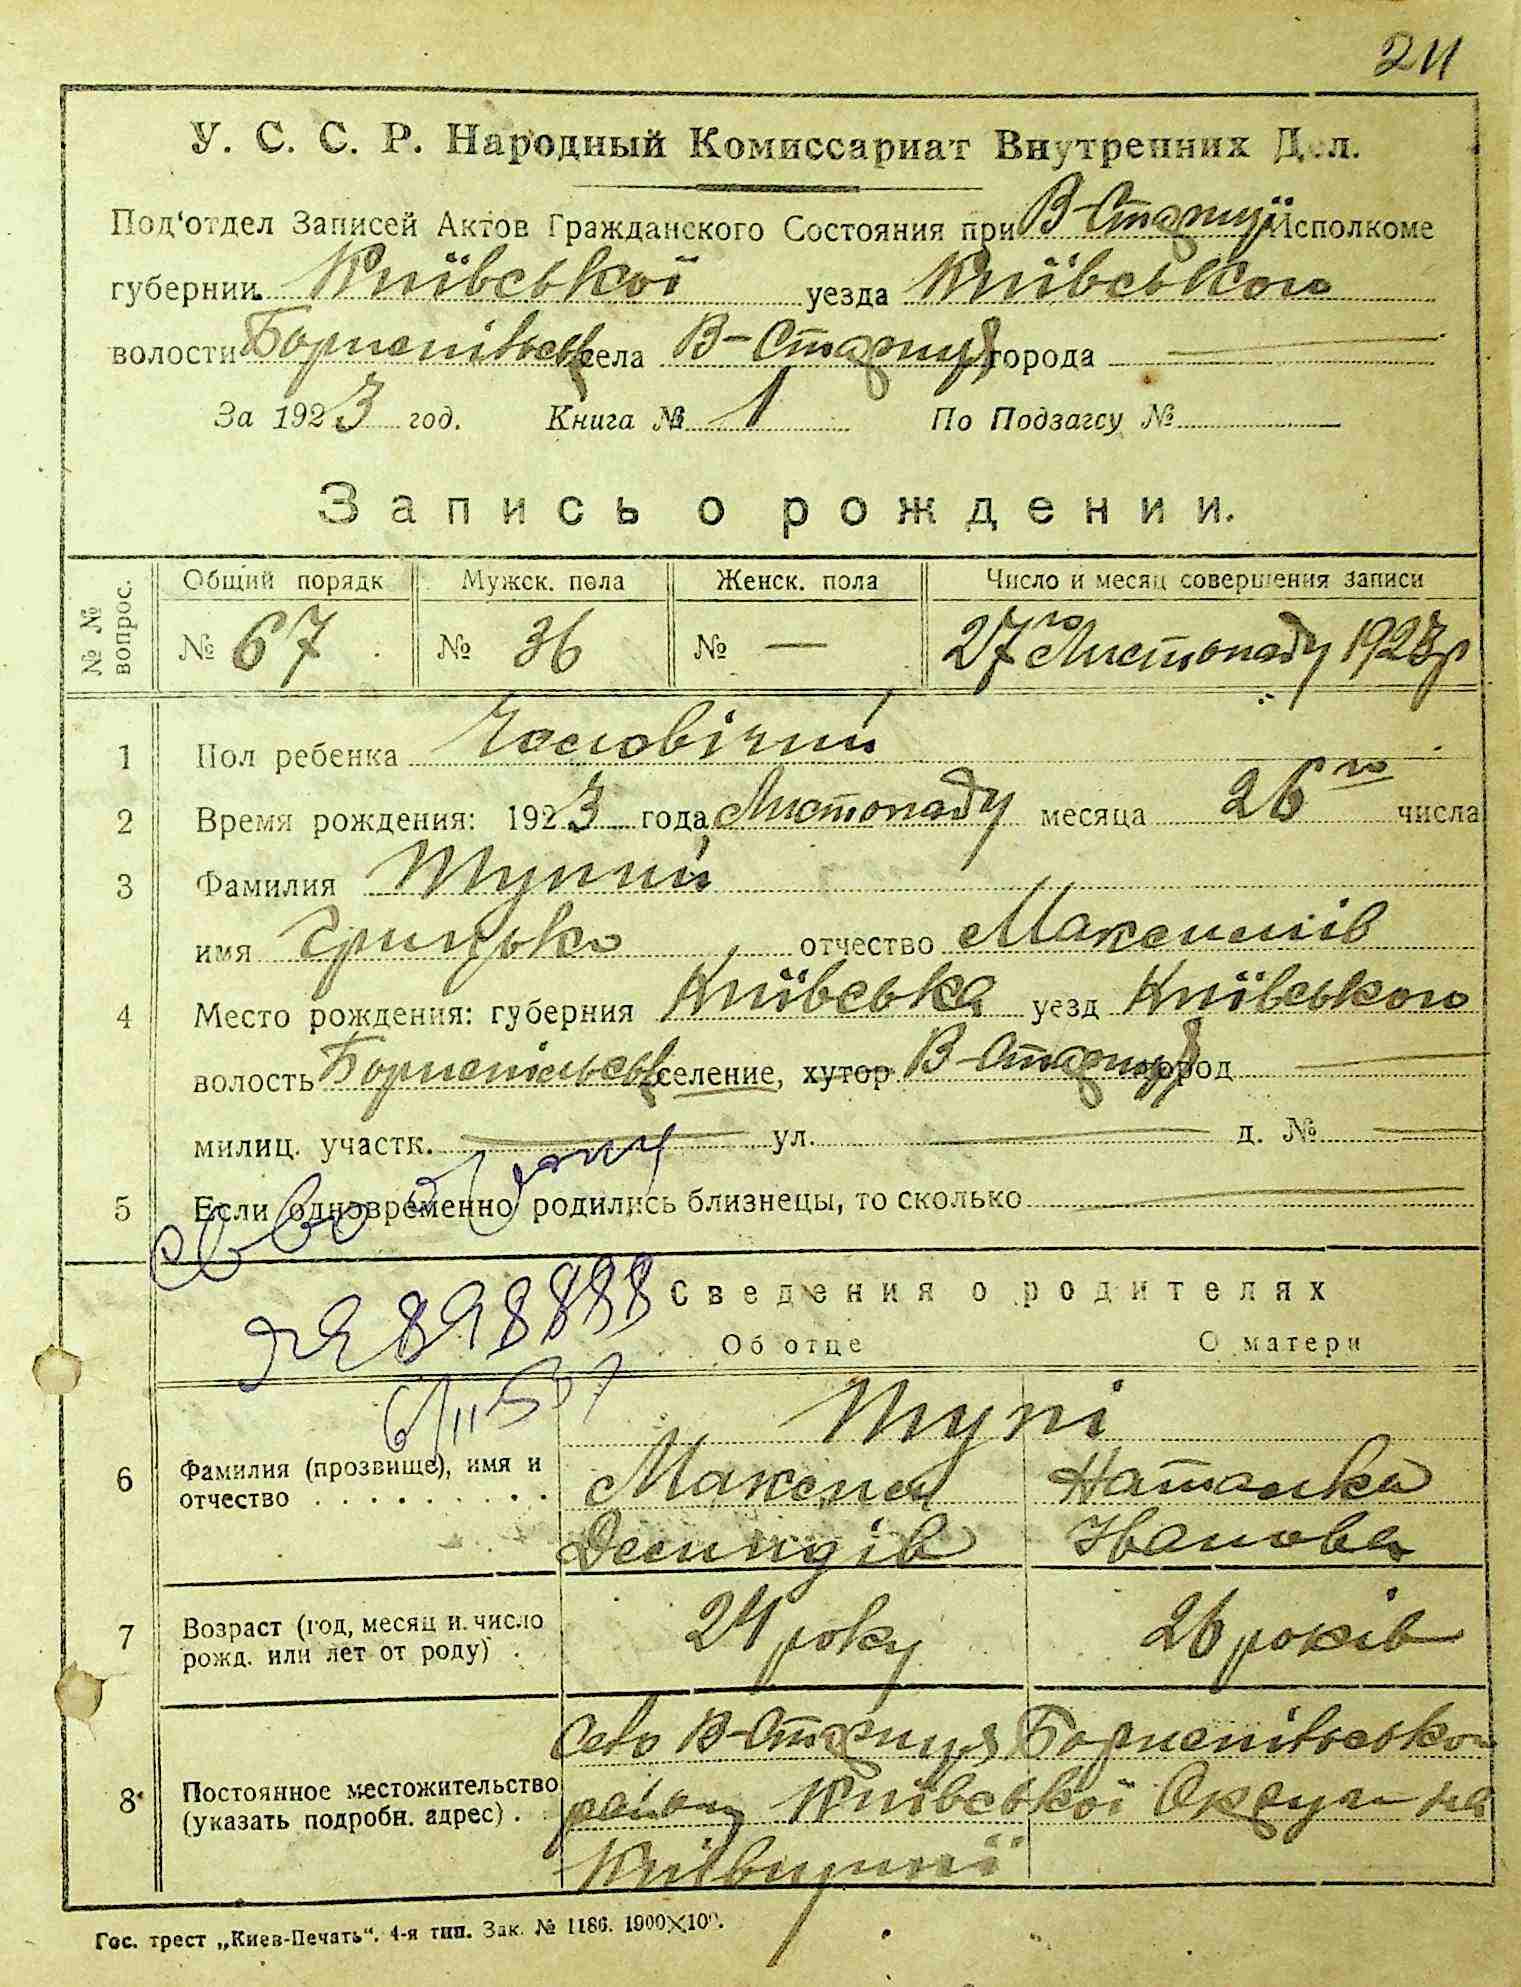 24
У. С. С. Р. Народный Комиссариат Внутренних Дел.
Под'отдел Записей Актов Гражданского Состояния при В-Стариц. Исполкоме
губернии Київської уезда Київського
волости Бориспільськ села В-Стариця города —
За 1923 год. Книга № 1 По Подзагсу №
Запись о рождении.
№ № вопрос. Общий порядк Мужск. пола Женск. пола Число и месяц совершения записи
№ 67 № 36 № — 27го Листопаду 1923р
1 Пол ребенка Чоловічий
2 Время рождения: 1923 года Листопаду месяца 26го числа
3 Фамилия Тупий
имя Грицько отчество Максимів
4 Место рождения: губерния Київська уезд Київського
волость Бориспільськ селение, хутор В-Стариця город —
милиц. участк. — ул. — д. № —
5 Если одновременно родились близнецы, то сколько —
Сведения о родителях
898888
Об отце О матери
Тупі
6 Фамилия (прозвище), имя и Максим Наталка
отчество Демидів Іванова
7 Возраст (год, месяц и число рожд. или лет от роду) 24 року 26 років
Село В-Стариця Бориспільського
8 Постоянное местожительство (указать подробн. адрес) району Київської Округи на
Київщині
Гос. трест „Киев-Печать“. 4-я тип. Зак. № 1186. 1900×100.